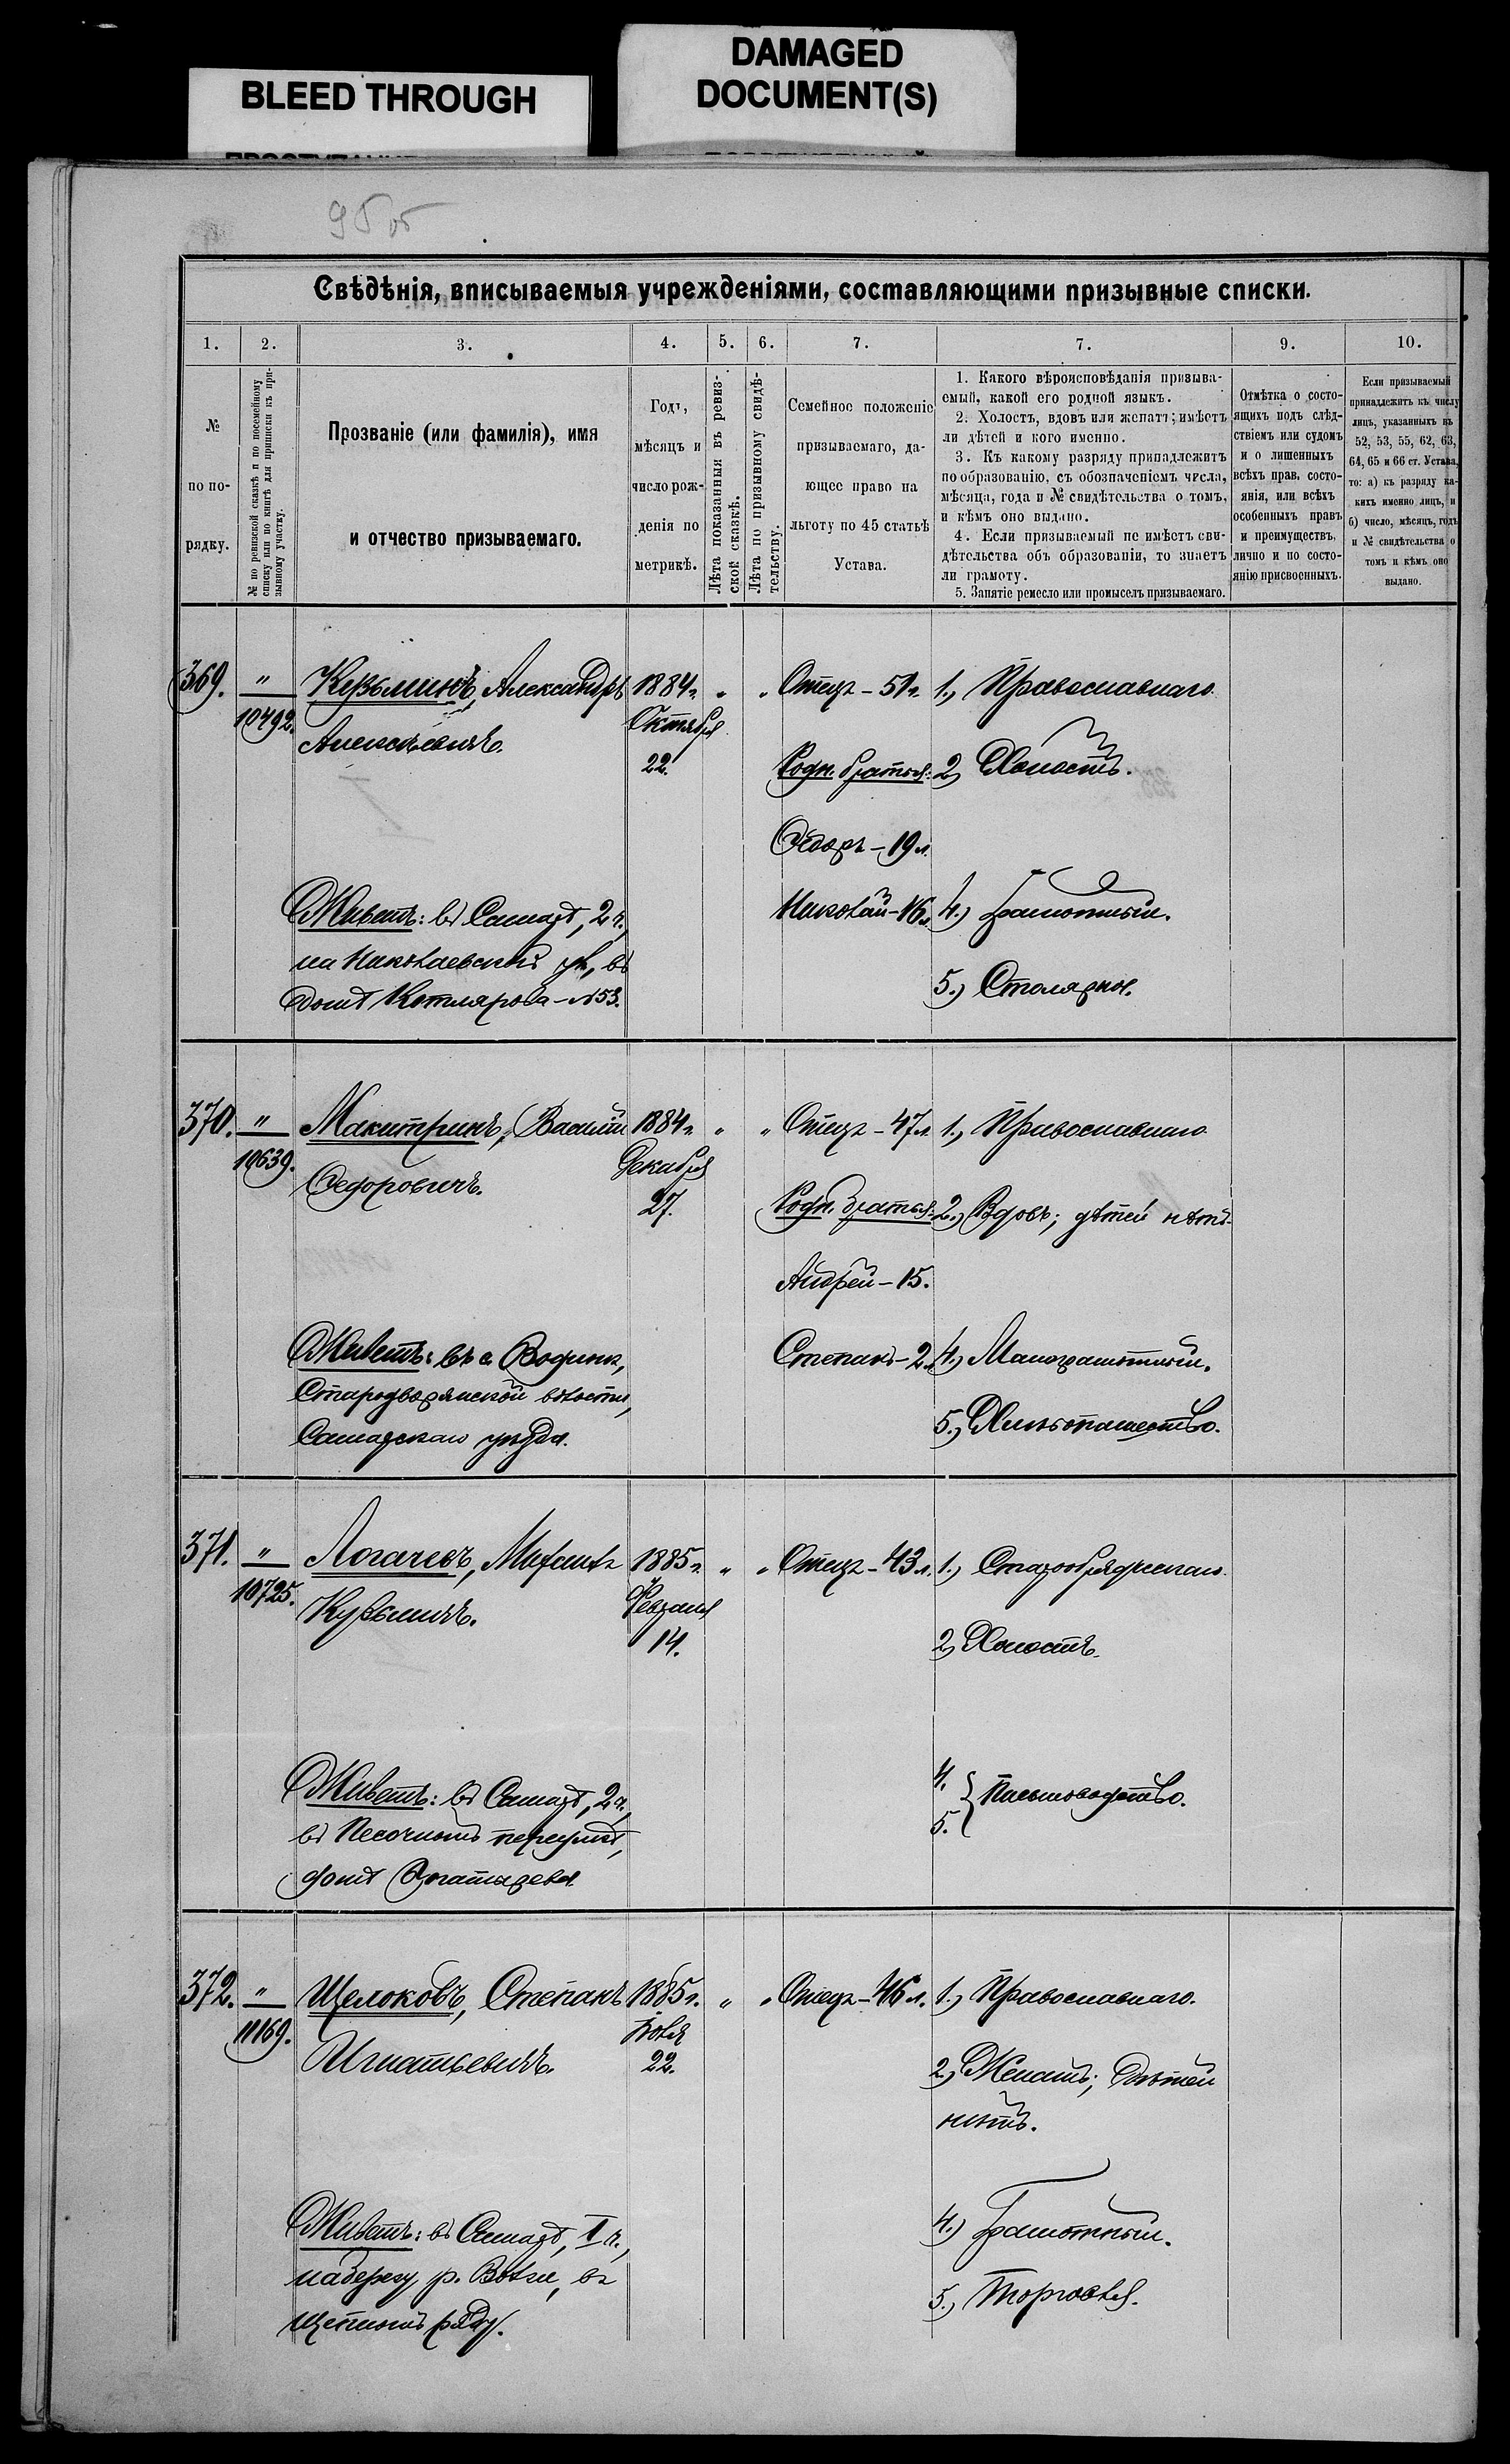 BLEED THROUGH
DAMAGED
DOCUMENT(S)
95 об
Свѣдѣнія, вписываемыя учрежденіями, составляющими призывные списки.
1. 2. 3. 4. 5. 6. 7. 7. 9. 10.
№
по по-
рядку.
№ по ревизской сказкѣ и по посемейному
списку или по книгѣ для приписки къ при-
зывному участку.
Прозваніе (или фамилія), имя
и отчество призываемаго.
Годъ,
мѣсяцъ и
число рож-
денія по
метрикѣ.
Лѣта показанныя въ ревиз-
ской сказкѣ.
Лѣта по призывному свидѣ-
тельству.
Семейное положеніе
призываемаго, да-
ющее право на
льготу по 45 статьѣ
Устава.
1. Какого вѣроисповѣданія призыва-
емый, какой его родной языкъ.
2. Холостъ, вдовъ или женатъ; имѣетъ
ли дѣтей и кого именно.
3. Къ какому разряду принадлежитъ
по образованію, съ обозначеніемъ числа,
мѣсяца, года и № свидѣтельства о томъ,
и кѣмъ оно выдано.
4. Если призываемый не имѣетъ сви-
дѣтельства объ образованіи, то знаетъ
ли грамоту.
5. Занятіе ремесло или промыселъ призываемаго.
Отмѣтка о состо-
ящихъ подъ слѣд-
ствіемъ или судомъ
и о лишенныхъ
всѣхъ прав. состо-
янія, или всѣхъ
особенныхъ правъ
и преимуществъ,
лично и по состо-
янію присвоенныхъ.
Если призываемый
принадлежитъ къ числу
лицъ, указанныхъ въ
52, 53, 55, 62, 63,
64, 65 и 66 ст. Устава,
то: а) къ разряду ка-
кихъ именно лицъ, и
б) число, мѣсяцъ, годъ
и № свидѣтельства о
томъ и кѣмъ оно
выдано.
369. " Кузьминъ, Александръ 1884г. " " Отецъ - 51г. 1.) Православнаго
10492. Алексѣевичъ. Октября
22. Родн. братья: 2) Холостъ.
Ѳедоръ - 19 л.
Живетъ: въ Самарѣ, 2 ч., Николай - 16 л. 4.) Грамотный.
на Николаевской ул., въ
домѣ Котлярова - № 53. 5.) Столярное.
370. " Макитринъ, Василій 1884г. " " Отецъ - 47 л. 1.) Православнаго
10639. Ѳедоровичъ. Декабря
27. Родн. братья: 2.) Вдовъ; дѣтей нѣтъ.
Андрей - 15.
Живетъ: въ с. Водинѣ, Степанъ - 2. 4.) Малограмотный.
Стародворянской волости,
Самарскаго уѣзда. 5.) Хлѣбопашество.
371. " Логачевъ, Михаилъ 1885г. " " Отецъ - 43 л. 1.) Старообрядческаго.
10725. Кузьмичъ. Февраля
14. 2) Холостъ.
Живетъ: въ Самарѣ, 2 ч., 4. 5. } Письмоводство.
въ Песочномъ переулкѣ,
домѣ
372. " Щелоковъ, Степанъ 1885г. " " Отецъ - 46 л. 1.) Православнаго.
11169. Игнатьевичъ. Іюля
22. 2) Женатъ; дѣтей
нѣтъ.
Живетъ: въ Самарѣ, I ч., 4.) Грамотный.
на берегу р. Волги, въ
Щепномъ ряду. 5.) Торговля.